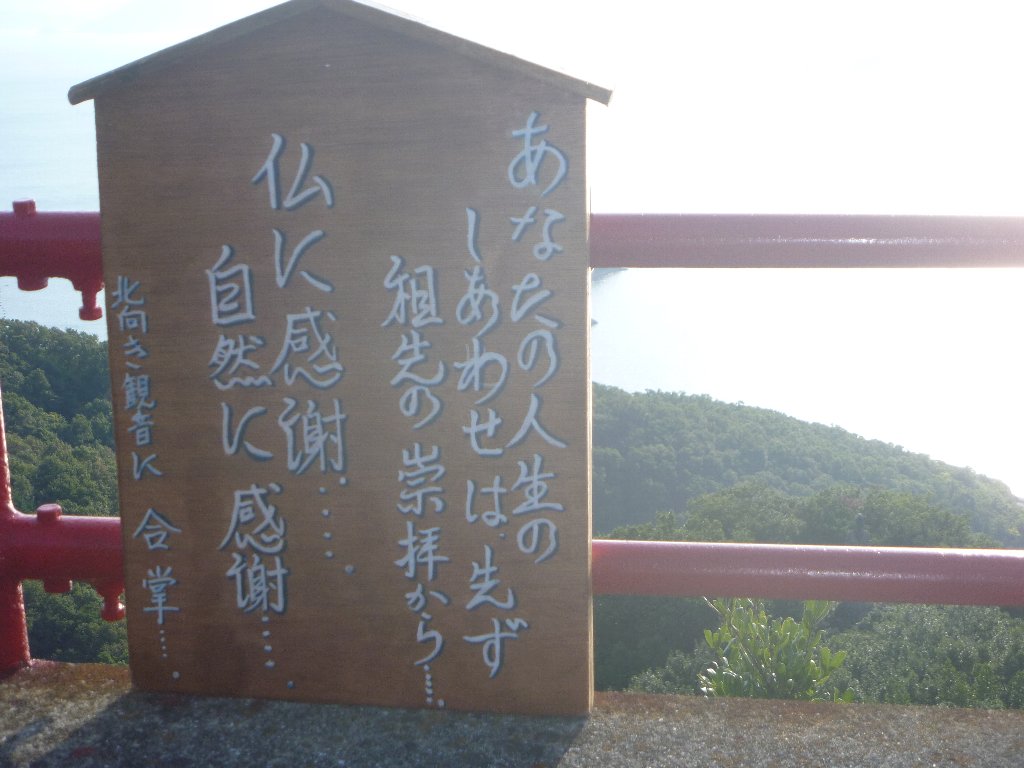 あなたの人生の
しあわせは.先ず
祖先の崇拝から……
仏に感謝……。
自然に感謝……。
北向き観音に 合掌……。